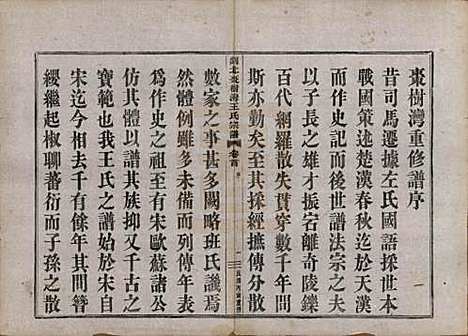 棗樹灣重修譜序
昔司馬遷據左氏國語採世本
戰國策述楚漢春秋迄於天漢
而作史記而後世譜法宗之夫
以子長之雄才振宕離奇陵鑠
百代網羅散失貫穿數千年間
斯亦勤矣至其採經摭傳分散
王氏宗譜
卷首
數家之事甚多闊略班氏譏焉
然體例雖多未備而列傳年表
作史之祖至有宋歐蘇諸公各
以體以譜其族抑又千古之
矣王氏之譜始於宋自
宋迄今相去千有餘年其間簪
纓繼起椒聊蕃衍而子孫之散